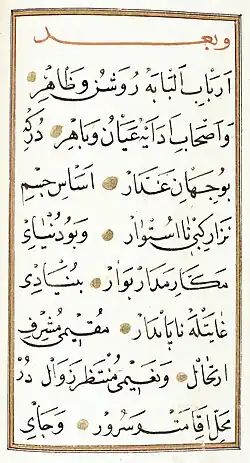 وبعد
ارباب البابه روشن و ظاهر
و اصحاب ادابه عيان و باهر دركه
بو جهان غدار اساس جسم
نزار كبى نا استوار و بو دنياى
مكار مدار بوار بنيادى
غايتله ناپايدار مقيمى مشرف
ارتحال و نعيمى منتظر زوال در
محل اقامت و سرور و جاى